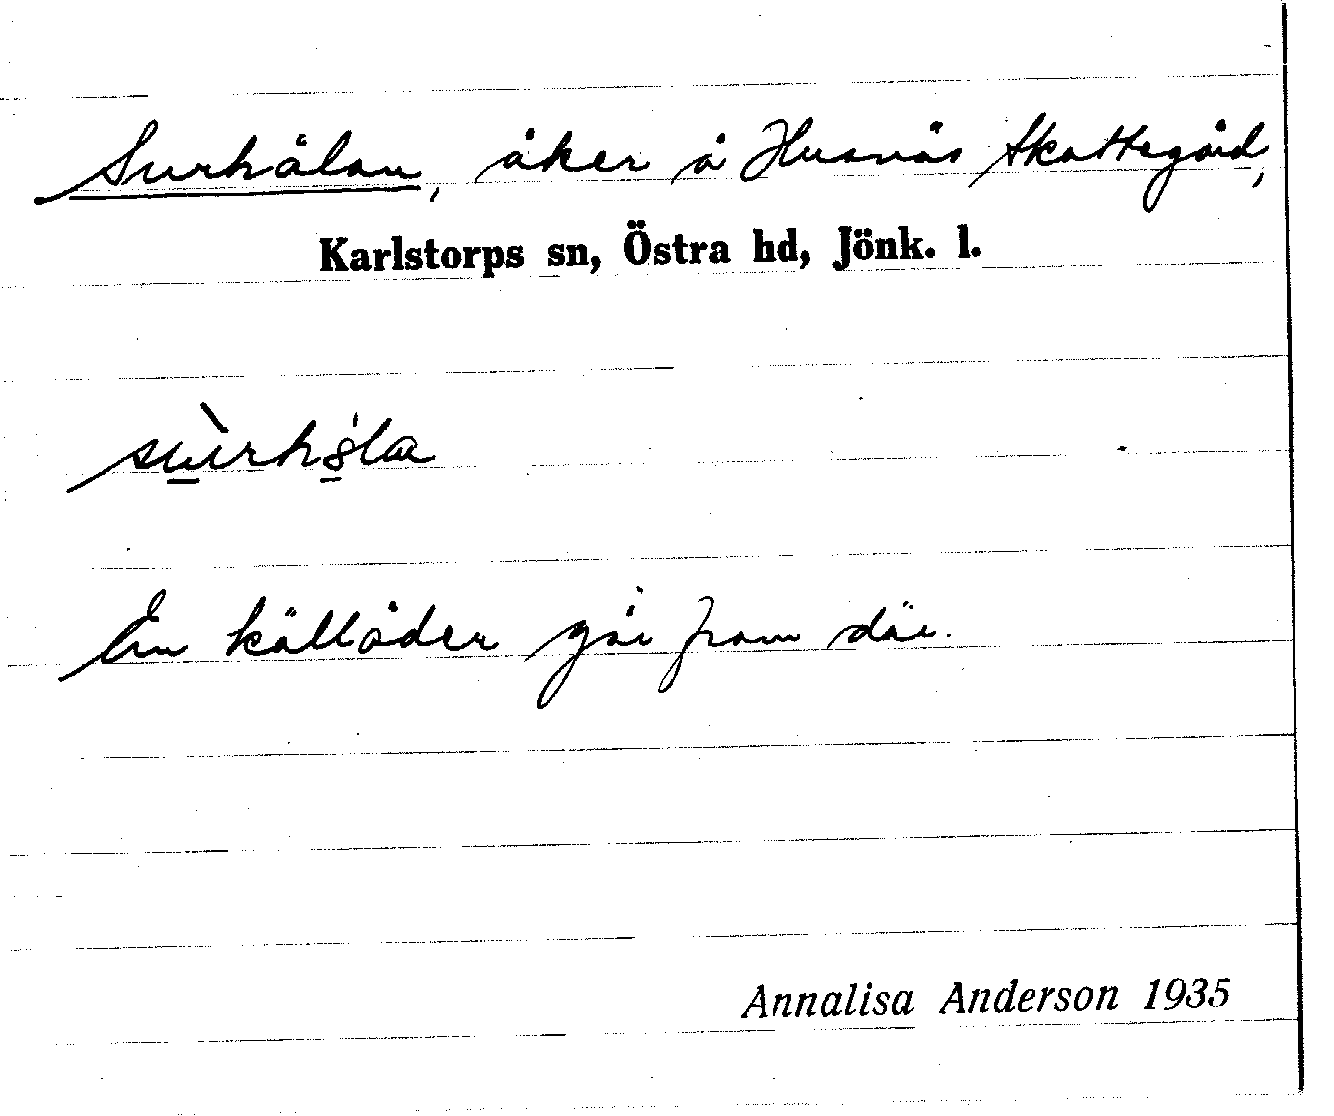 Surhålan, åker å Husnäs Skattegård,
Karlstorps sn, Östra hd, Jönk. l.
En källåder går fram där.
Annalisa Anderson 1935